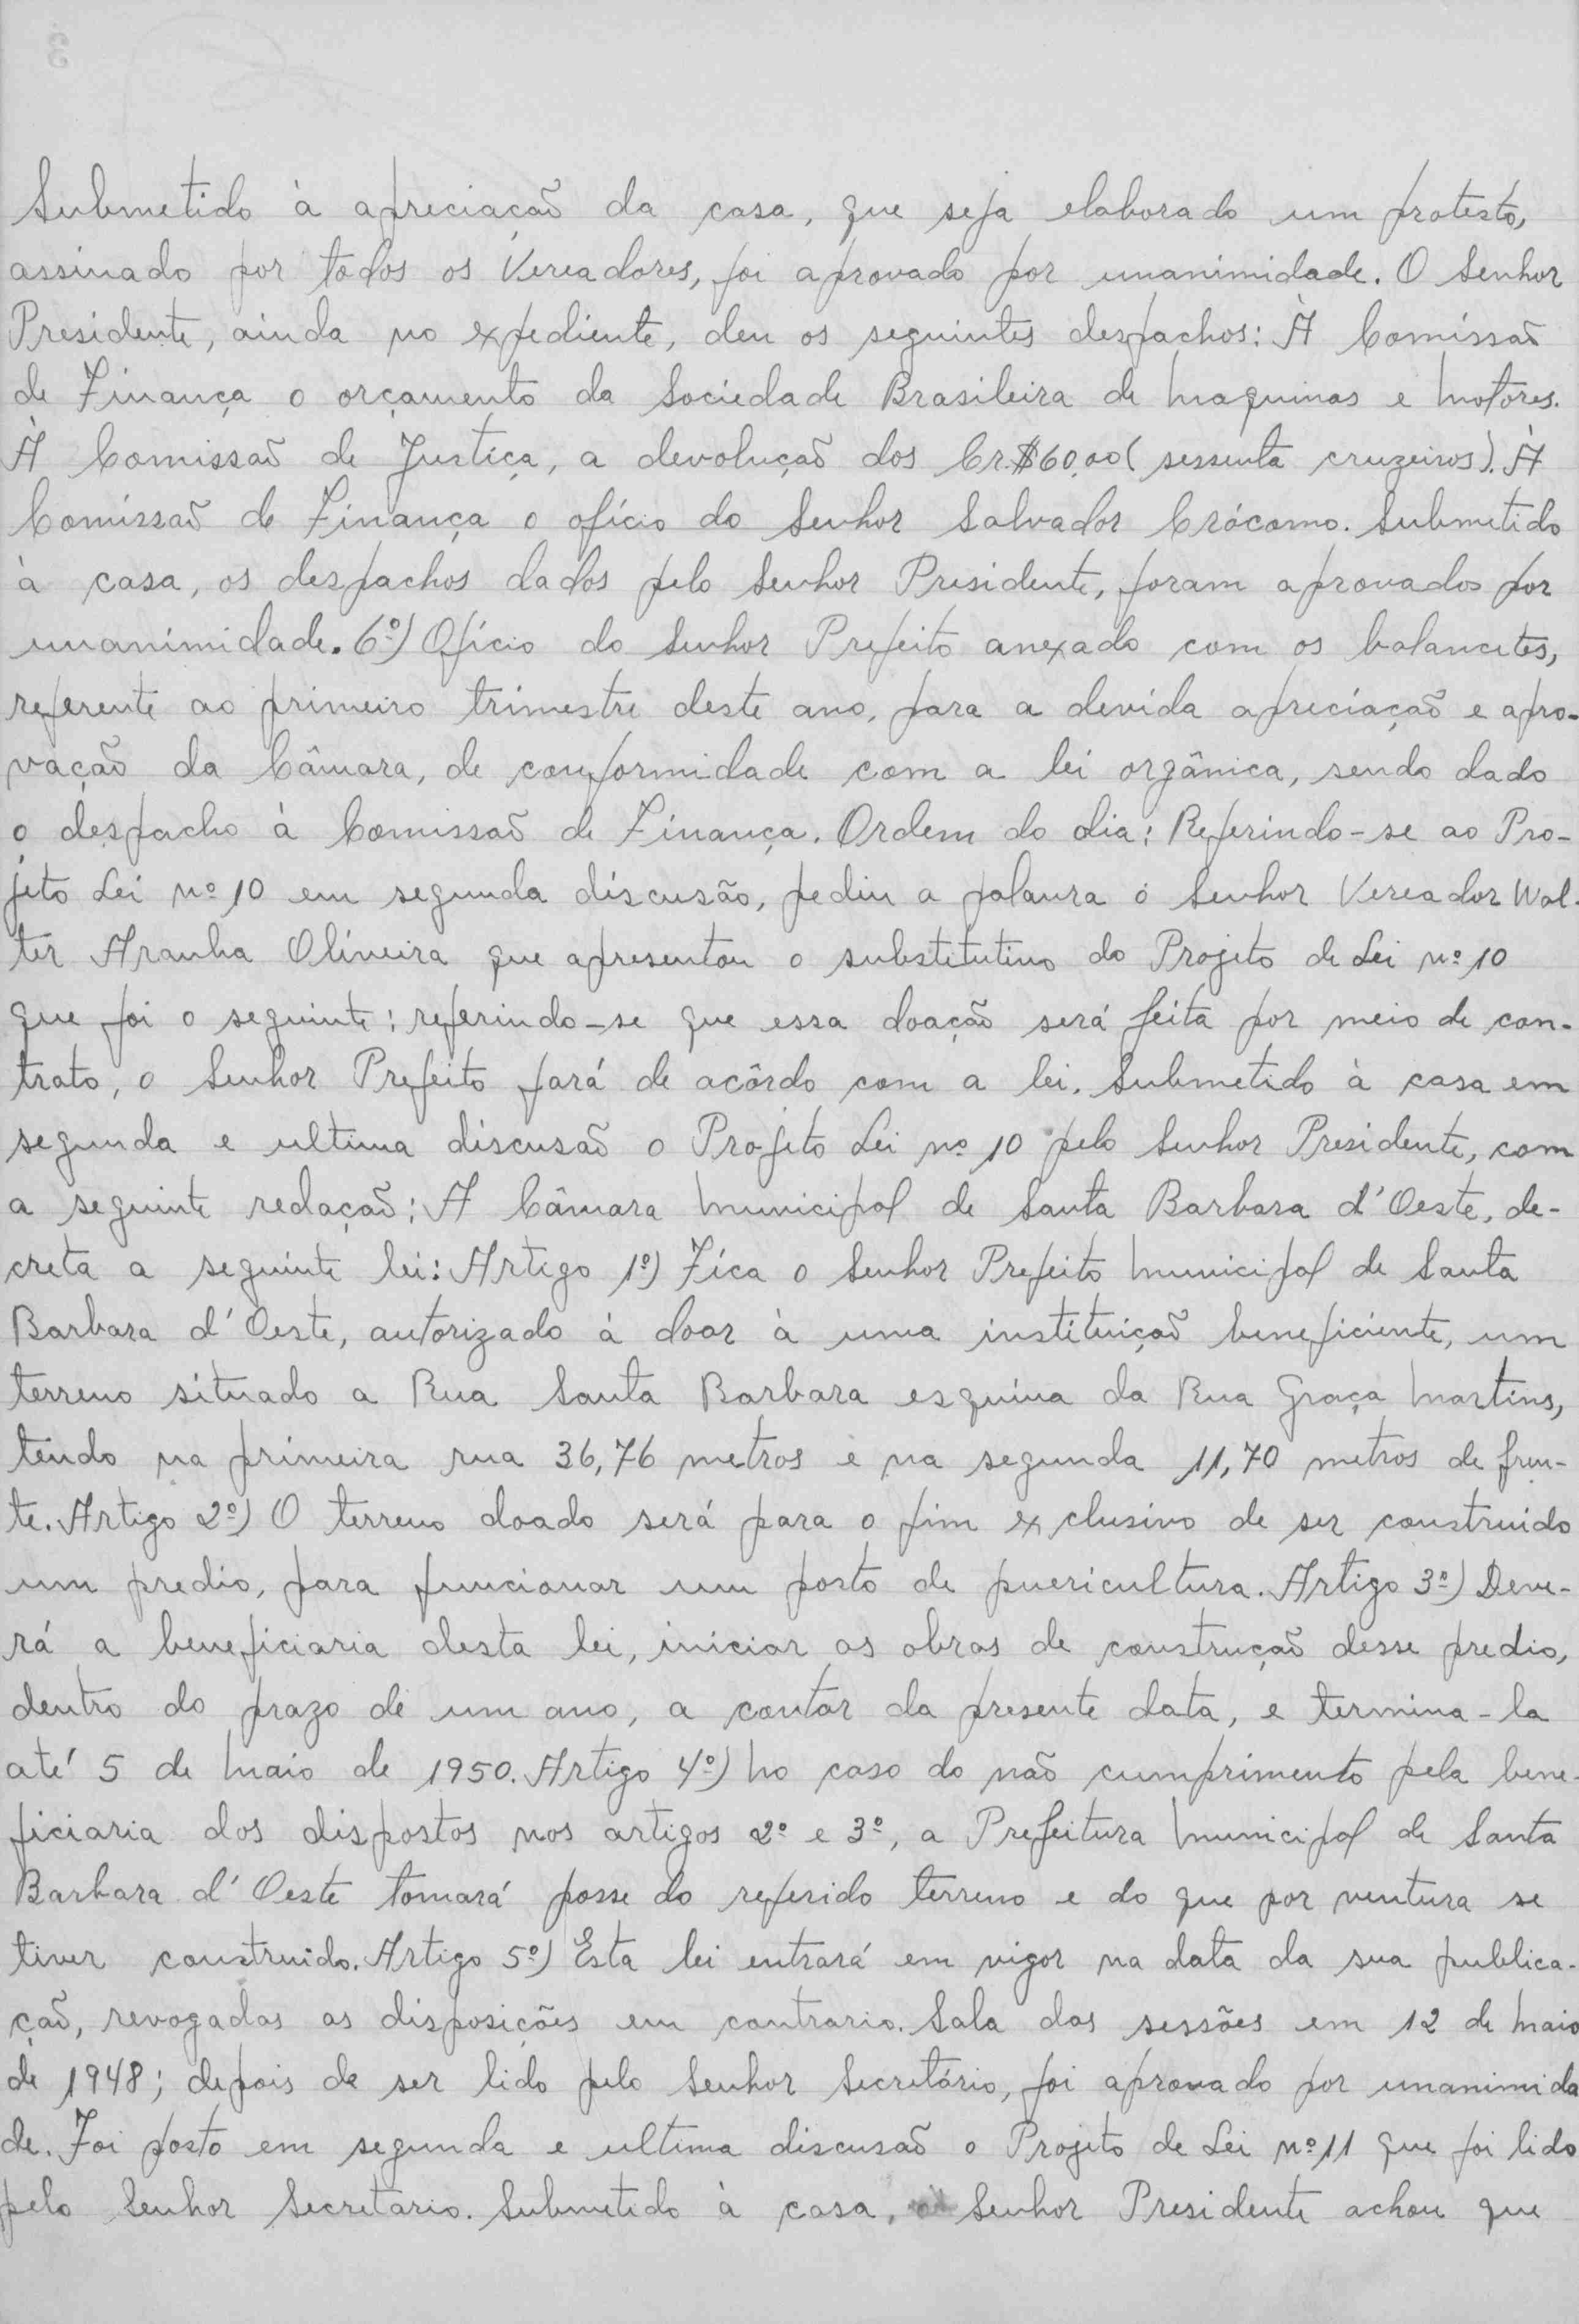 Submetido à apreciação da casa, que seja elaborado um protesto,
assinado por todos os Vereadores, foi aprovado por unanimidade. O Senhor
Presidente, ainda no expediente, deu os seguintes despachos: À Comissão
de Finança o orçamento da Sociedade Brasileira de Maquinas e Motores.
À Comissão de Justiça, a devolução dos Cr.$60,00 (sessenta cruzeiros). À
Comissão de Finança o ofício do Senhor Salvador Crócomo. Submetido
à casa, os despachos dados pelo Senhor Presidente, foram aprovados por
unanimidade. 6º) Ofício do Senhor Prefeito anexado com os balancetes,
referente ao primeiro trimestre deste ano, para a devida apreciação e apro-
vação da Câmara, de conformidade com a lei orgânica, sendo dado
o despacho à Comissão de Finança. Ordem do dia: Referindo-se ao Pro-
jeto Lei nº 10 em segunda discusão, pediu a palavra o Senhor Vereador Wal-
ter Aranha Oliveira que apresentou o substitutivo do Projeto de Lei nº 10
que foi o seguinte: referindo-se que essa doação será feita por meio de con-
trato, o Senhor Prefeito fará de acôrdo com a lei. Submetido à casa em
segunda e ultima discusão o Projeto Lei nº 10 pelo Senhor Presidente, com
a seguinte redação: A Câmara Municipal de Santa Barbara d'Oeste, de-
creta a seguinte lei: Artigo 1º) Fíca o Senhor Prefeito Municipal de Santa
Barbara d'Oeste, autorizado à doar à uma instituição beneficiente, um
terreno situado a Rua Santa Barbara esquina da Rua Graça Martins,
tendo na primeira rua 36,76 metros e na segunda 11,70 metros de fren-
te. Artigo 2º) O terreno doado será para o fim exclusivo de ser construido
um predio, para funcionar um posto de puericultura. Artigo 3º) Deve-
rá a beneficiaria desta lei, iniciar as obras de construção desse predio,
dentro do prazo de um ano, a contar da presente data, e termina-la
até 5 de Maio de 1950. Artigo 4º) No caso do não cumprimento pela bene-
ficiaria dos dispostos nos artigos 2º e 3º, a Prefeitura Municipal de Santa
Barbara d'Oeste tomará posse do referido terreno e do que por ventura se
tiver construido. Artigo 5º) Esta lei entrará em vigor na data da sua publica-
ção, revogadas as disposições em contrario. Sala das sessões em 12 de Maio
de 1948; depois de ser lido pelo Senhor Secretário, foi aprovado por unanimida
de. Foi posto em segunda e ultima discusão o Projeto de Lei nº 11 que foi lido
pelo Senhor Secretario. Submetido à casa, o Senhor Presidente achou que